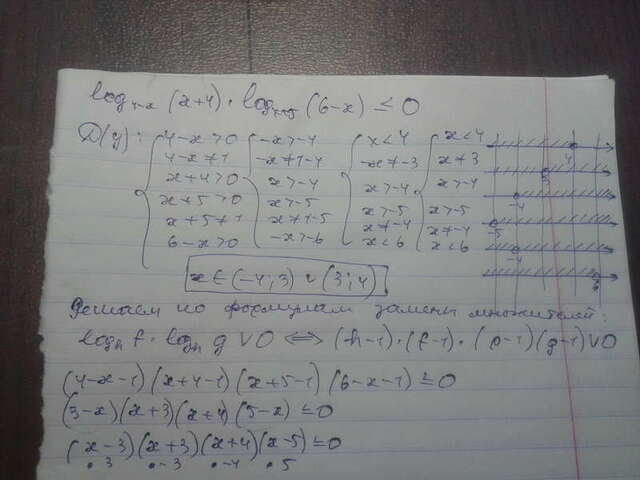 log₄₋ₓ (x+4) · logₓ₊₅ (6-x) ≤ 0
D(y): { 4-x>0 { -x>-4 { x<4 { x<4
4-x≠1 -x≠1-4 -x≠-3 x≠3 4
x+4>0 x>-4 x>-4 x>-4 3
x+5>0 x>-5 x>-5 x>-5 -4
x+5≠1 x≠1-5 x≠-4 x≠-4 -5
6-x>0 -x>-6 x<6 x<6 -4
x∈(-4;3)∪(3;4) 6
Решаем по формулам замены множителей:
logₕ f · logₚ g ∨ 0 ⟺ (h-1)·(f-1)·(p-1)(g-1)∨0
(4-x-1)(x+4-1)(x+5-1)(6-x-1) ≤ 0
(3-x)(x+3)(x+4)(5-x) ≤ 0
(x-3)(x+3)(x+4)(x-5) ≤ 0
• 3 • -3 • -4 • 5